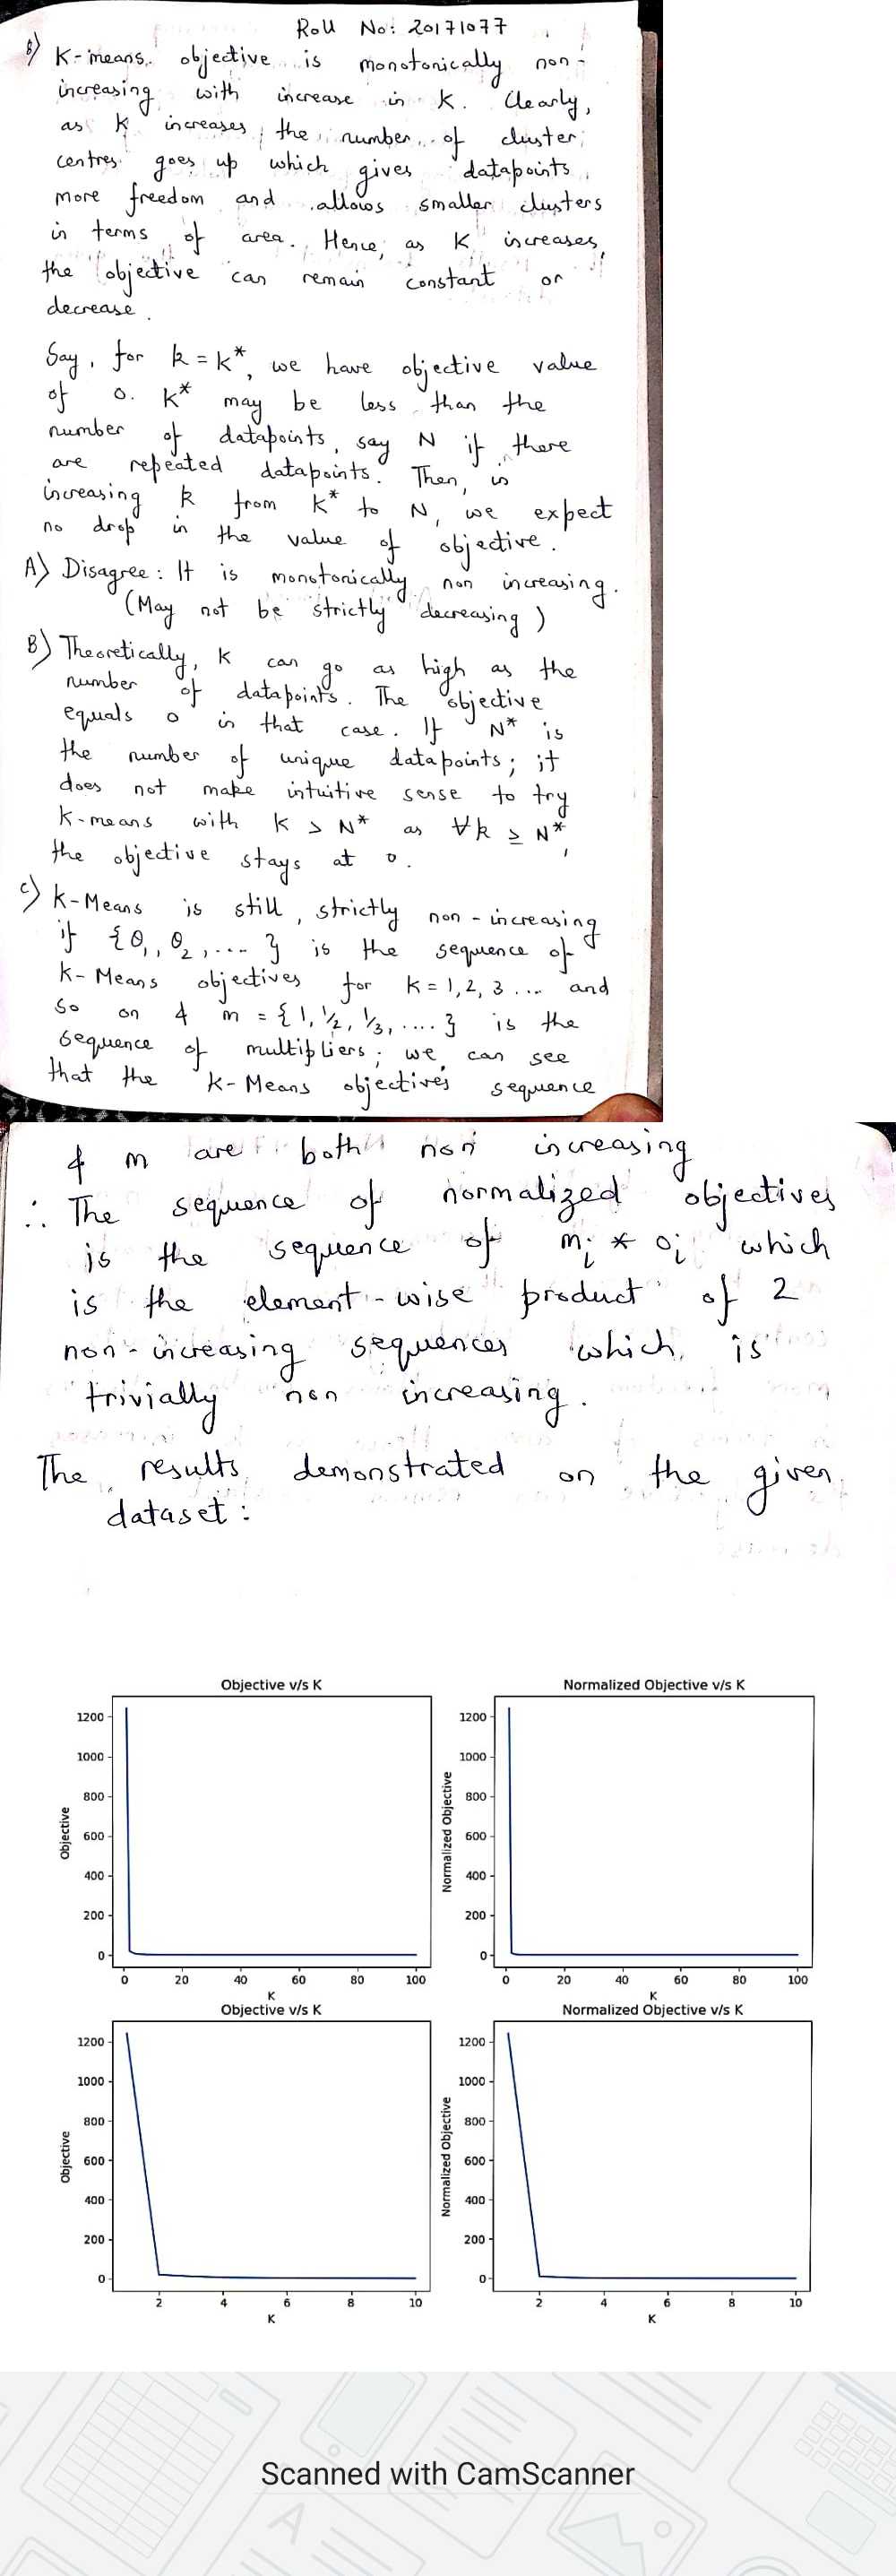 Roll No: 20171077
8) K-means objective is monotonically non-
increasing with increase in K. Clearly,
as K increases, the number of cluster
centres goes up which gives datapoints
more freedom and allows smaller clusters
in terms of area. Hence, as K increases,
the objective can remain constant or
decrease.
Say, for k = k*, we have objective value
of 0. k* may be less than the
number of datapoints, say N if there
are repeated datapoints. Then, in
increasing k from k* to N, we expect
no drop in the value of objective.
A) Disagree: It is monotonically non increasing.
(May not be strictly decreasing)
B) Theoretically, K can go as high as the
number of datapoints. The objective
equals 0 in that case. If N* is
the number of unique datapoints; it
does not make intuitive sense to try
K-means with K > N* as ∀k ≥ N*,
the objective stays at 0.
C) K-Means is still, strictly non-increasing
if {O1, O2, .... } is the sequence of
K-Means objectives for K = 1, 2, 3 ... and
so on & m = {1, 1/2, 1/3, ....} is the
sequence of multipliers; we can see
that the K-Means objectives sequence
& m are both non increasing
∴ The sequence of normalized objectives
is the sequence of mi * oi which
is the element-wise product of 2
non-increasing sequences which is
trivially non increasing.
The results demonstrated on the given
dataset:
Objective v/s K
Objective
1200
1000
800
600
400
200
0
0 20 40 60 80 100
K
Normalized Objective v/s K
Normalized Objective
1200
1000
800
600
400
200
0
0 20 40 60 80 100
K
Objective v/s K
Objective
1200
1000
800
600
400
200
0
2 4 6 8 10
K
Normalized Objective v/s K
Normalized Objective
1200
1000
800
600
400
200
0
2 4 6 8 10
K
Scanned with CamScanner